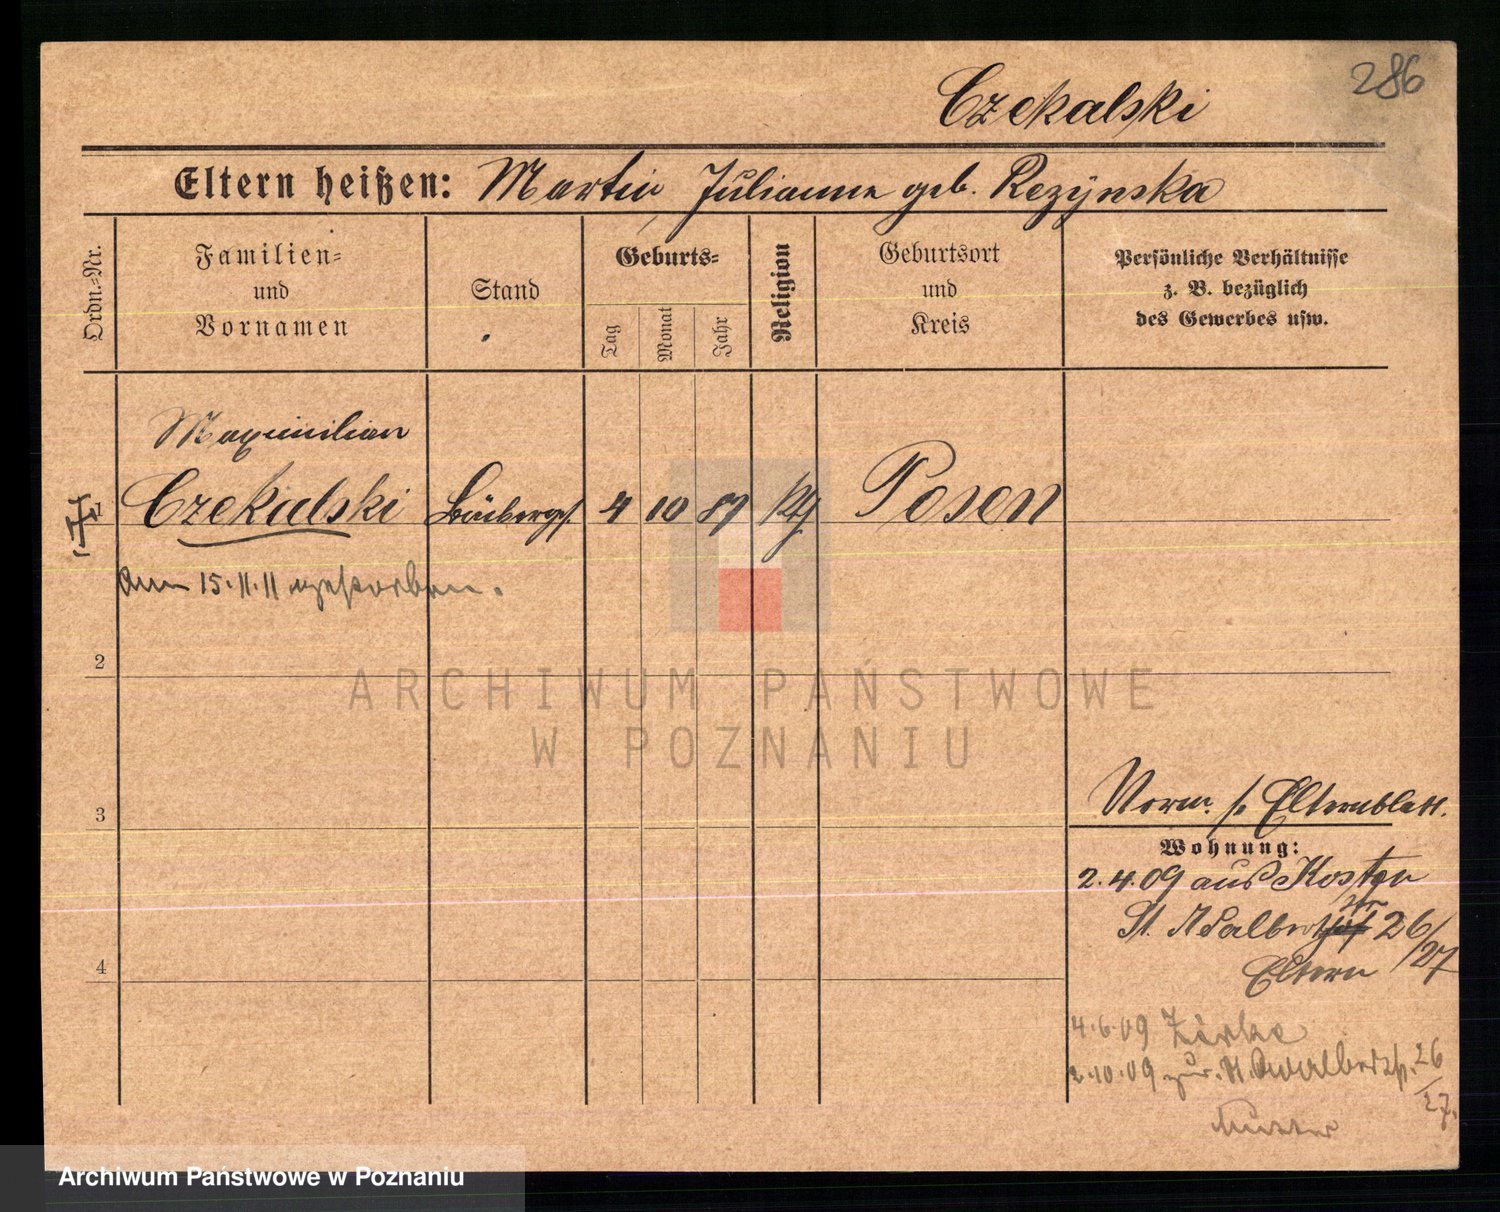 286
Czekalski
Eltern heißen: Martin Julianna geb. Rezynska
Ordn.-Nr.
Familien-
und
Vornamen
Stand
Geburts-
Tag
Monat
Jahr
Religion
Geburtsort
und
Kreis
Persönliche Verhältnisse
z. B. bezüglich
des Gewerbes usw.
Maximilian
1 Czekalski 4 10 89 Posen
Am 15.11.11 gestorben.
2
ARCHIWUM PAŃSTWOWE
W POZNANIU
3
Verm. s. Elternblatt.
Wohnung:
2.4.09 aus Kosten
St. Adalbertstr 26/27
Eltern
4
4.6.09
2.10.09 zur. St. Adalbertstr. 26/27.
Mutter
Archiwum Państwowe w Poznaniu